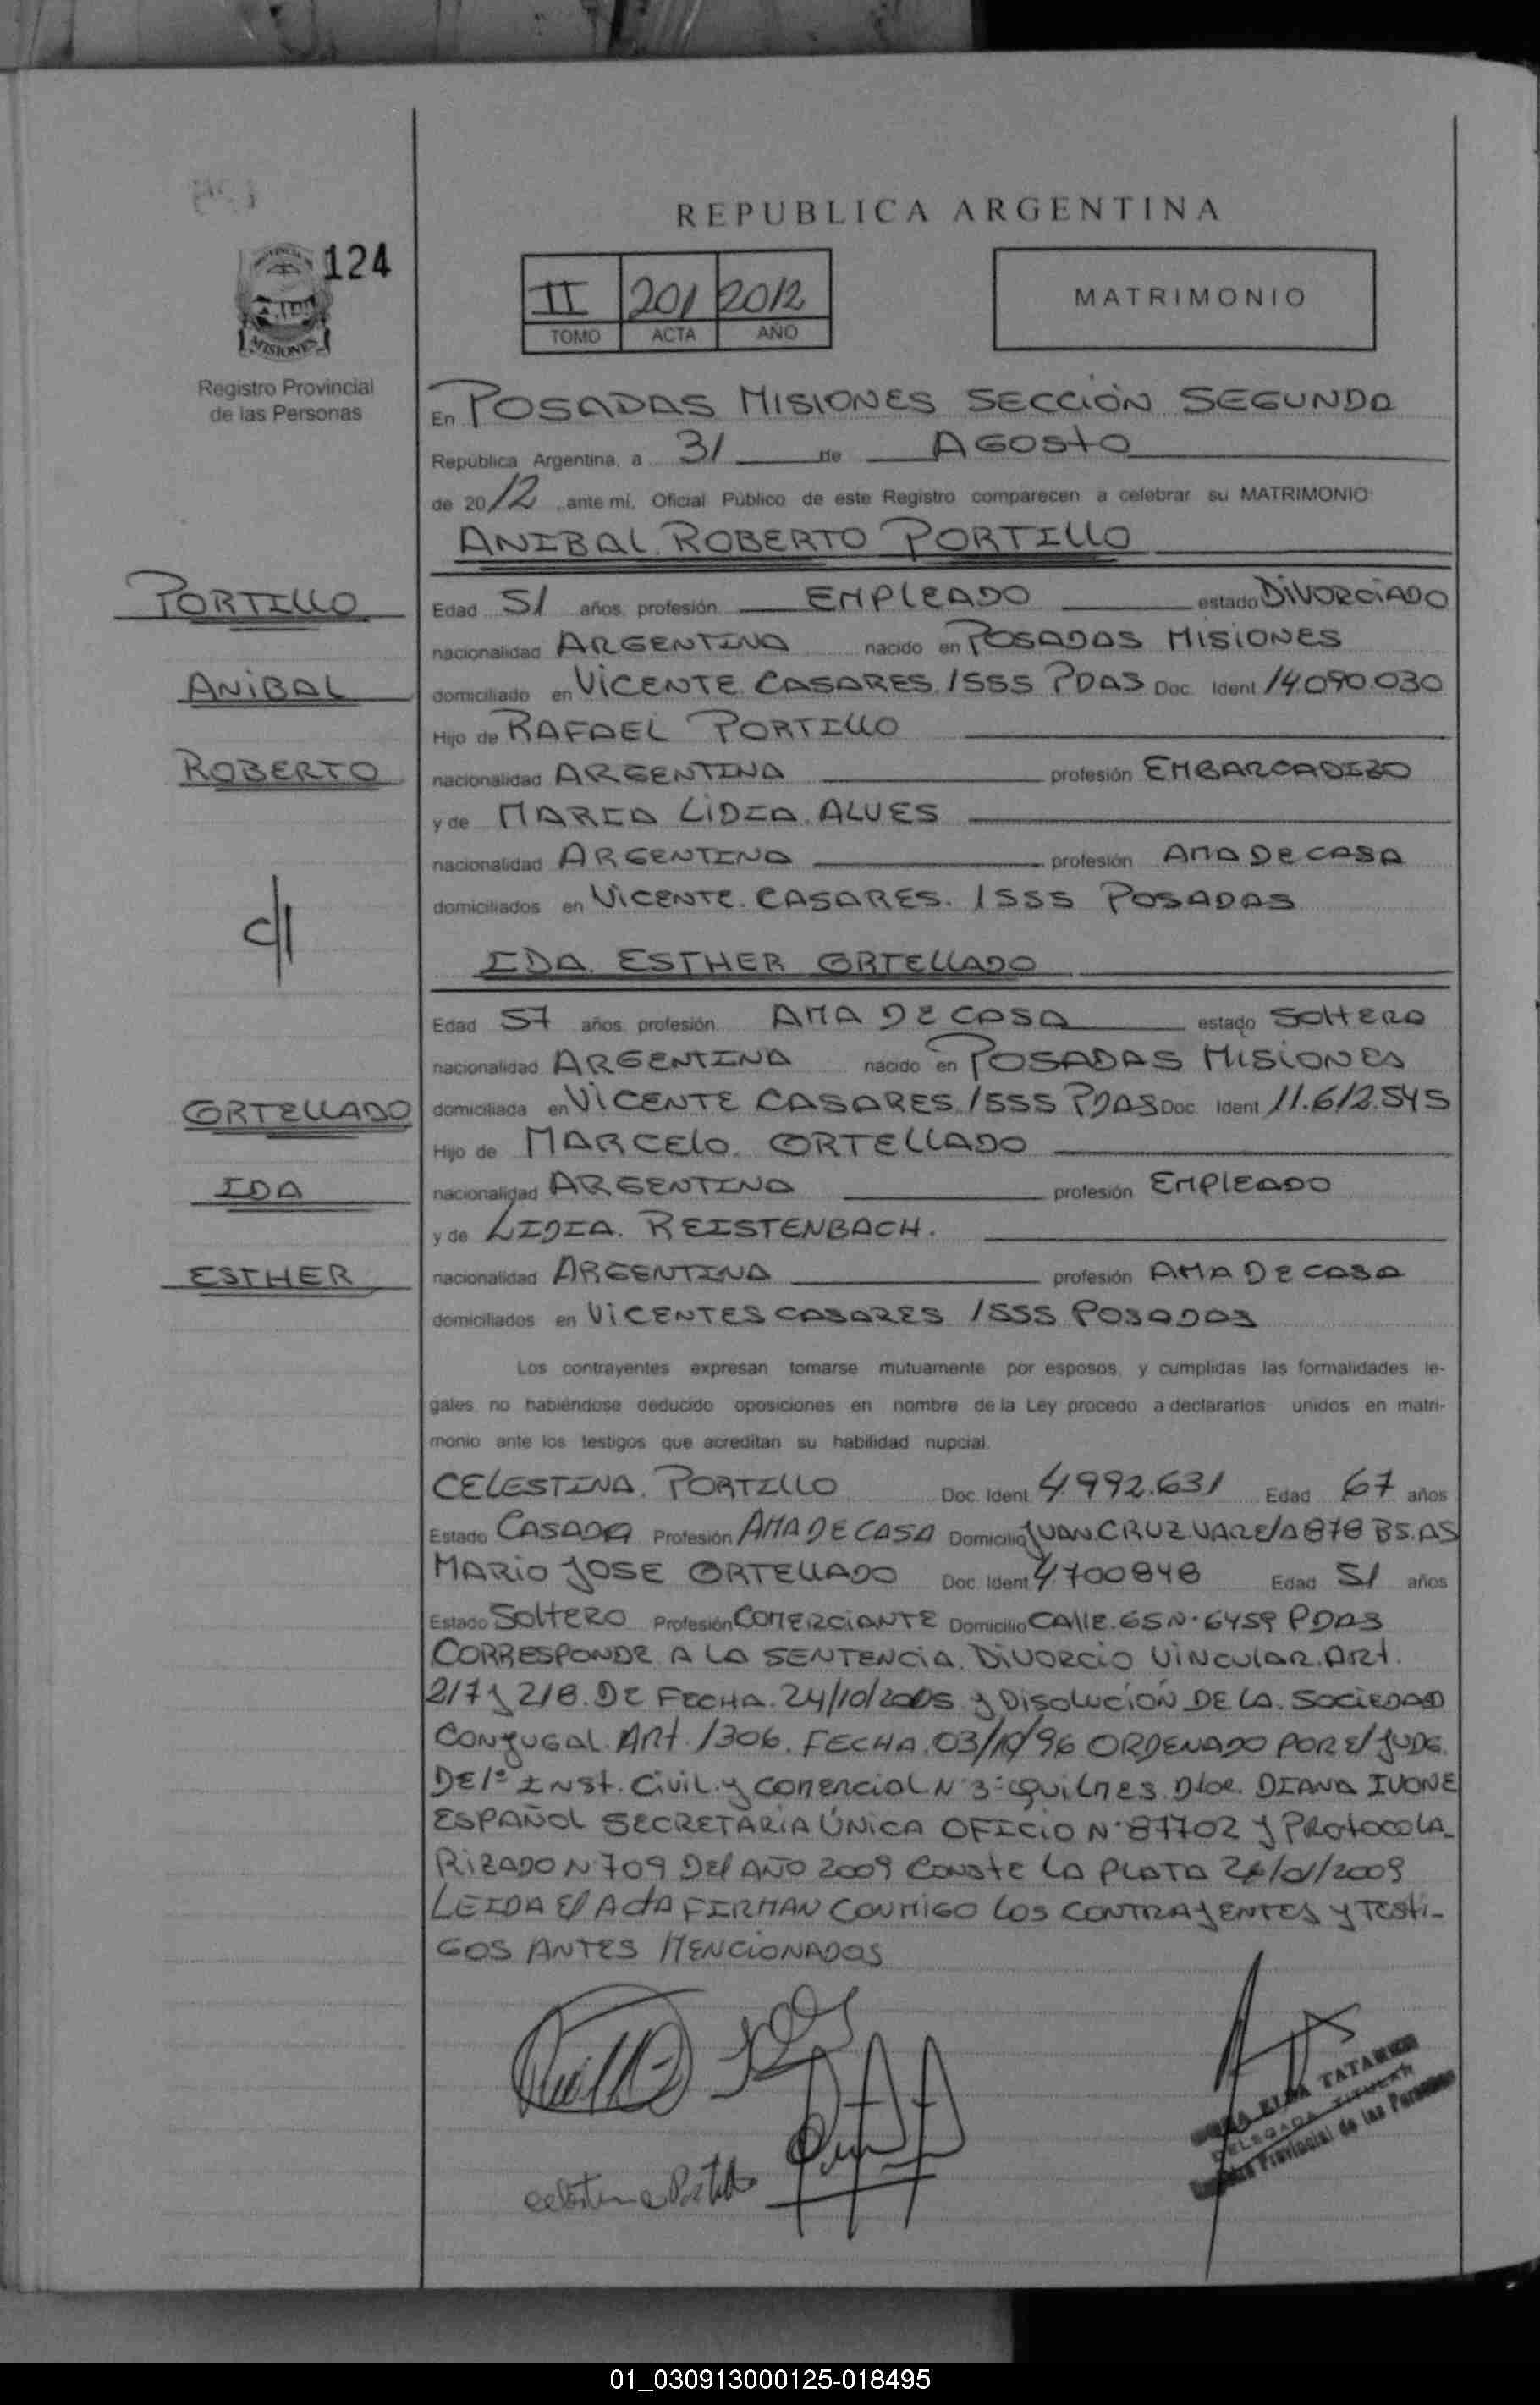 REPUBLICA ARGENTINA
124
MISIONES
Registro Provincial
de las Personas
II 201 2012
TOMO ACTA AÑO
MATRIMONIO
En POSADAS MISIONES SECCIÓN SEGUNDA
República Argentina, a 31 de AGOSTO
de 2012 ante mí, Oficial Público de este Registro comparecen a celebrar su MATRIMONIO
ANIBAL ROBERTO PORTILLO
PORTILLO
ANIBAL
ROBERTO
Edad 51 años profesión EMPLEADO estado DIVORCIADO
nacionalidad ARGENTINA nacido en POSADAS MISIONES
domiciliado en VICENTE CASARES 1555 PDAS Doc. Ident 14.090.030
Hijo de RAFAEL PORTILLO
nacionalidad ARGENTINA profesión EMBARCADIZO
y de MARIA LIDIA ALVES
nacionalidad ARGENTINA profesión AMA DE CASA
domiciliados en VICENTE CASARES. 1555 POSADAS
IDA ESTHER ORTELLADO
Edad 57 años profesión AMA DE CASA estado SOLTERA
nacionalidad ARGENTINA nacido en POSADAS MISIONES
domiciliada en VICENTE CASARES 1555 PDAS Doc. Ident 11.612.545
Hijo de MARCELO ORTELLADO
nacionalidad ARGENTINA profesión EMPLEADO
y de LIDIA. REISTENBACH.
nacionalidad ARGENTINA profesión AMA DE CASA
domiciliados en VICENTES CASARES 1555 POSADAS
ORTELLADO
IDA
ESTHER
Los contrayentes expresan tomarse mutuamente por esposos, y cumplidas las formalidades le-
gales no habiéndose deducido oposiciones en nombre de la Ley procedo a declararlos unidos en matri-
monio ante los testigos que acreditan su habilidad nupcial.
CELESTINA. PORTILLO Doc. Ident 4.992.631 Edad 67 años
Estado CASADA Profesión AMA DE CASA Domicilio JUAN CRUZ VARELA 878 BS.AS
MARIO JOSE ORTELLADO Doc. Ident 4700848 Edad 51 años
Estado SOLTERO Profesión COMERCIANTE Domicilio CALLE 65 N° 6459 PDAS
CORRESPONDE A LA SENTENCIA. DIVORCIO VINCULAR. ART.
217 y 218. DE FECHA. 24/10/2005 y DISOLUCIÓN DE LA. SOCIEDAD
CONYUGAL. ART. 1306. FECHA. 03/10/96 ORDENADO POR El JUDG.
DE 1° INST. CIVIL. y COMERCIAL N°3 QUILMES. DIANA IVONE
ESPAÑOL SECRETARÍA ÚNICA OFICIO N° 87702 y PROTOCOLA-
RIZADO N° 709 DEl AÑO 2009 CONSTE LA PLATA /01/2009
LEIDA El ACTA FIRMAN CONMIGO LOS CONTRAYENTES y TESTI-
GOS ANTES MENCIONADOS
Celestina Portillo
DELEGADA TITULAR
Provincial de las Personas
01_030913000125-018495